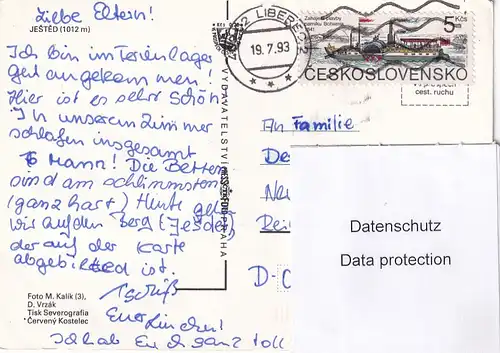 Liebe Eltern!
JEŠTĚD (1012 m)
Ich bin im Ferienlager
gut angekommen!
Hier ist es sehr schön!
In unserem Zimmer
schlafen insgesamt
6 Mann! Die Betten
sind am schlimmsten
(ganz hart) Heute
wir auf den Berg (Jested)
der auf der Karte
abgebildet ist.
Tschüß
Euer
Ich hab Euch ganz toll
Foto M. Kalík (3),
D. Vrzák
Tisk Severografia
Červený Kostelec
VYDAVATELSTVÍ PRAHA
LIBEREC 2
19.7.93
5 Kčs
ČESKOSLOVENSKO
cest. ruchu
An Familie
De
Ne
Rei
D-
Datenschutz
Data protection